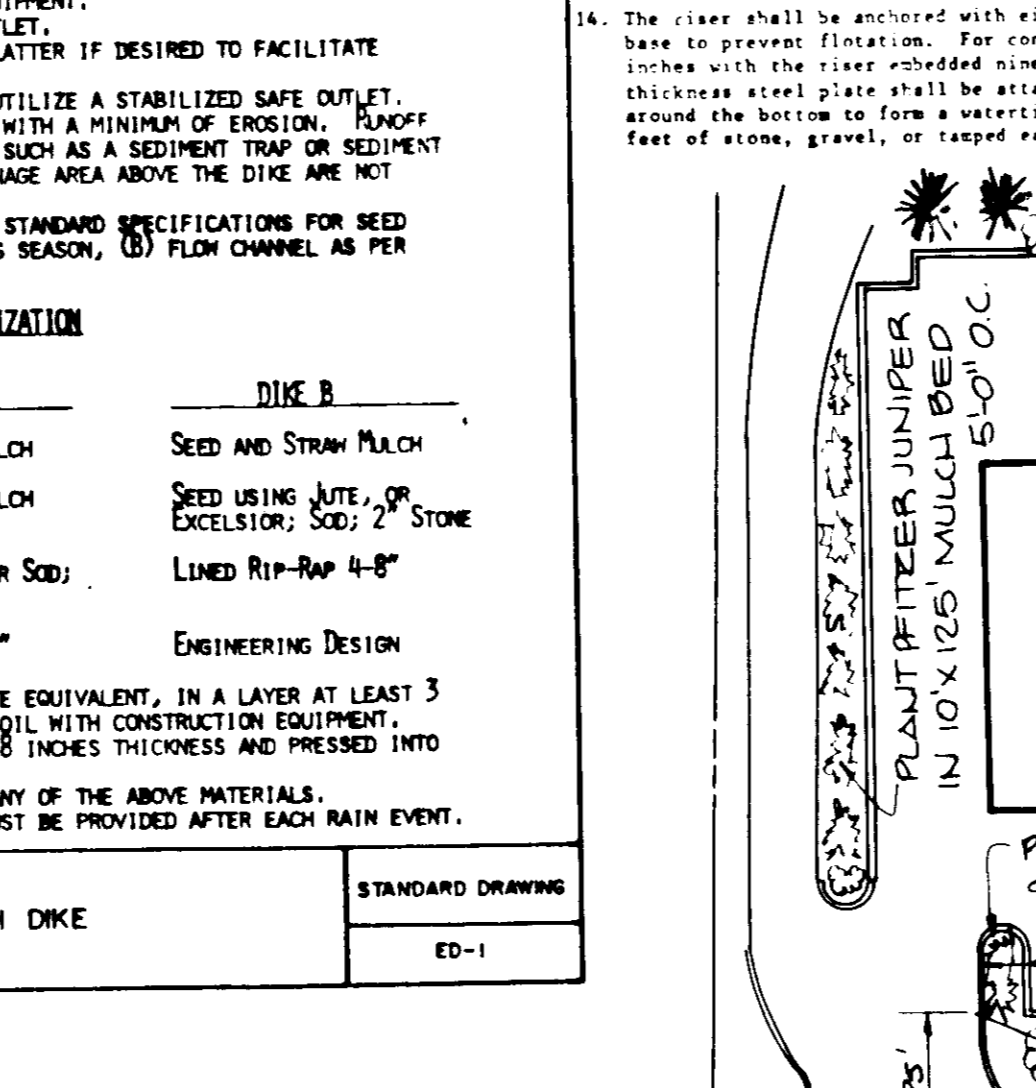 IPMENT.
TLET.
LATTER IF DESIRED TO FACILITATE
UTILIZE A STABILIZED SAFE OUTLET.
WITH A MINIMUM OF EROSION. RUNOFF
SUCH AS A SEDIMENT TRAP OR SEDIMENT
NAGE AREA ABOVE THE DIKE ARE NOT
STANDARD SPECIFICATIONS FOR SEED
S SEASON, (B) FLOW CHANNEL AS PER
IZATION
DIKE B
LCH
SEED AND STRAW MULCH
LCH
SEED USING JUTE, OR
EXCELSIOR; SOD; 2" STONE
R SOD;
LINED RIP-RAP 4-8"
"
ENGINEERING DESIGN
E EQUIVALENT, IN A LAYER AT LEAST 3
OIL WITH CONSTRUCTION EQUIPMENT.
8 INCHES THICKNESS AND PRESSED INTO
NY OF THE ABOVE MATERIALS.
UST BE PROVIDED AFTER EACH RAIN EVENT.
H DIKE
STANDARD DRAWING
ED-1
14. The riser shall be anchored with ei
base to prevent flotation. For con
inches with the riser embedded nine
thickness steel plate shall be atta
around the bottom to form a waterti
feet of stone, gravel, or tamped ea
PLANT PFITZER JUNIPER
IN 10'X125' MULCH BED
5'-0" O.C.
P
5'